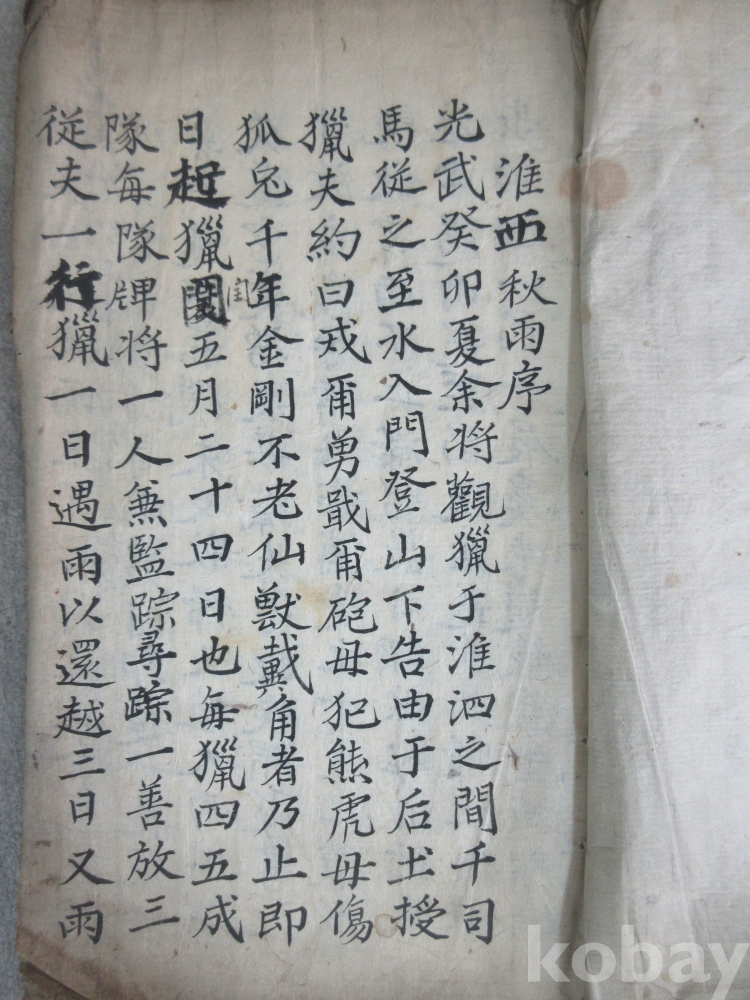 淮西秋雨序
光武癸卯夏余将觀獵于淮泗之間千司
馬従之至水入門登山下告由于后土授
獵夫約曰戒爾勇戢爾砲毋犯熊虎毋傷
狐兔千年金剛不老仙獸戴角者乃止即
日起獵閏五月二十四日也每獵四五成
閏
隊每隊牌将一人兼監踪尋踪一善放三
従夫一行獵一日遇雨以還越三日又雨
kobay